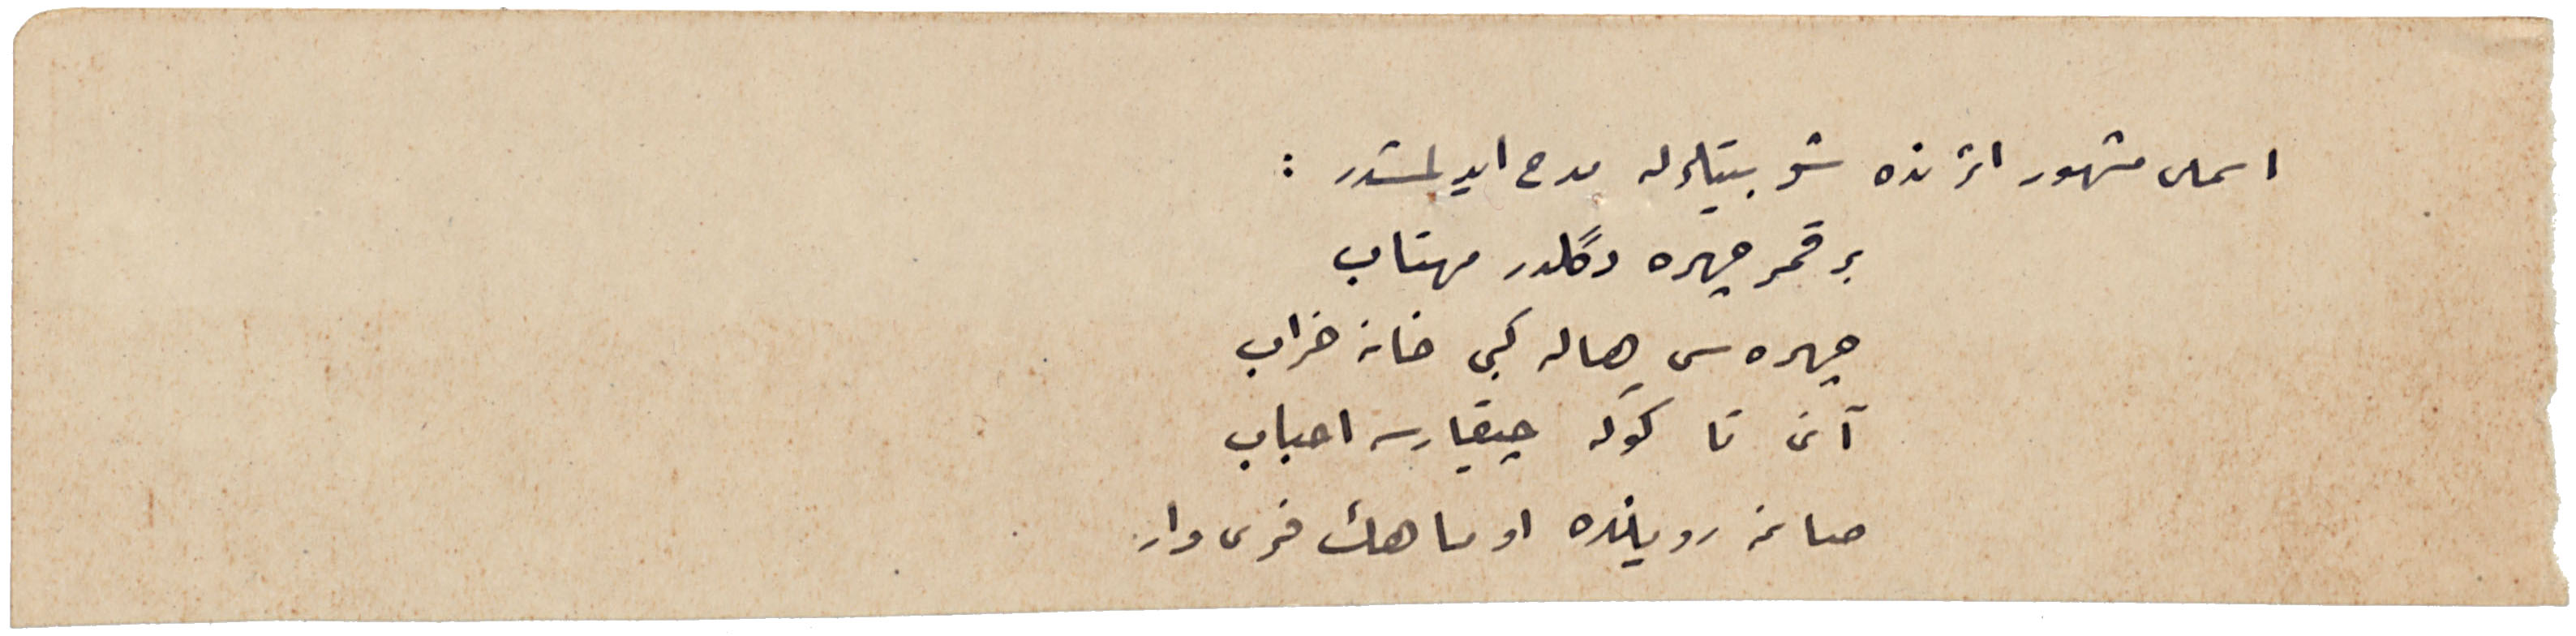 اسملى مشهور اثرنده شو بيتلرله مدح ايدلمشدر :
بر قمر چهره دگلدر مهتاب
چهره سى هاله كبى خانه خراب
آنى تا كوگه چيقارسه احباب
صانمه رويانده او ماهك فرى وار